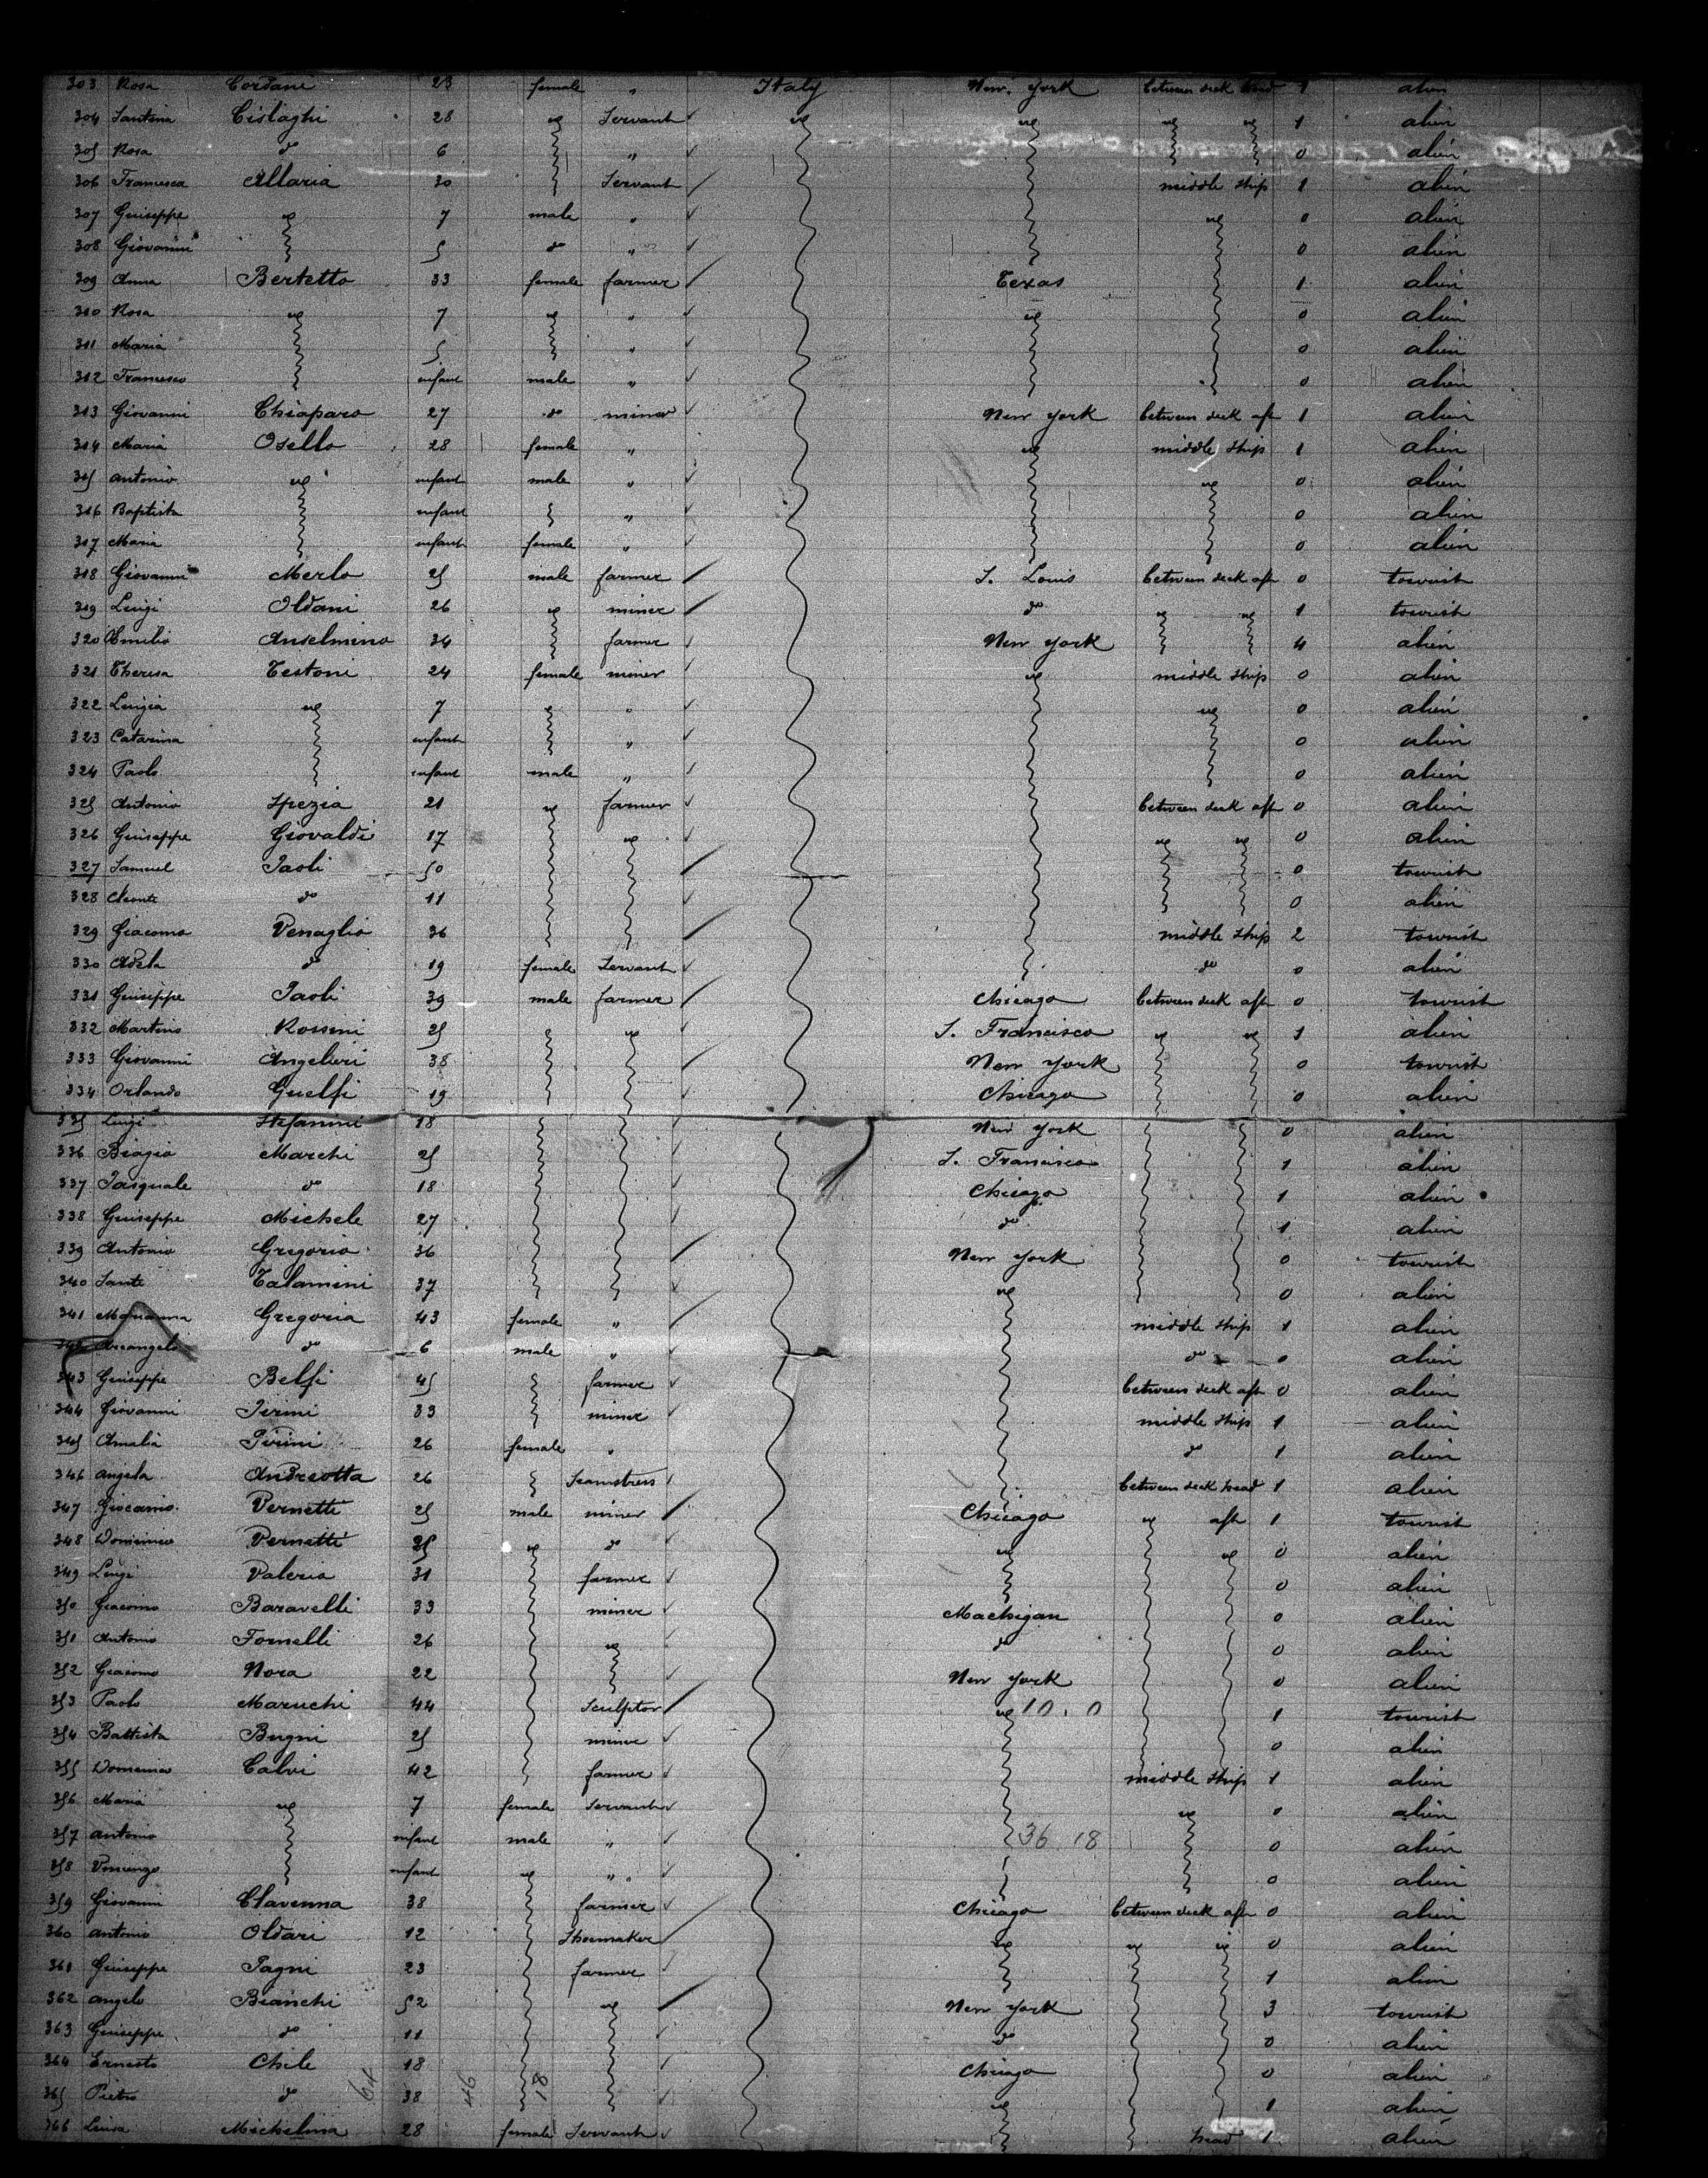 303 Rosa Cordani 23 female " Italy New York between deck head 1 alien
304 Santina Cislaghi 28 Servant 1 alien
305 Rosa do 6 " 0 alien
306 Francesca Allaria 30 Servant middle ship 1 alien
307 Guiseppe 7 male " 0 alien
308 Giovanni 5 do " 0 alien
309 Anna Bertetto 33 female farmer Texas 1 alien
310 Rosa 7 " 0 alien
311 Maria 5 " 0 alien
312 Francesco infant male " 0 alien
313 Giovanni Chiaparo 27 do miner New York between deck aft 1 alien
314 Maria Osello 28 female " middle ship 1 alien
315 Antonio infant male " 0 alien
316 Baptista infant " 0 alien
317 Maria infant female " 0 alien
318 Giovanni Merlo 25 male farmer S. Louis between deck aft 0 tourist
319 Luigi Oldani 26 miner do 1 tourist
320 Emilio Anselmino 34 farmer New York 4 alien
321 Theresa Testoni 24 female miner middle ship 0 alien
322 Luigia 7 " 0 alien
323 Catarina infant " 0 alien
324 Paolo infant male " 0 alien
325 Antonio Spezia 21 farmer between deck aft 0 alien
326 Guiseppe Giovaldi 17 0 alien
327 Samuel Paoli 50 0 tourist
328 do 11 0 alien
329 Giacomo Venaglio 36 middle ship 2 tourist
330 Adela do 19 female Servant do 0 alien
331 Guiseppe Paoli 39 male farmer Chicago between deck aft 0 tourist
332 Martino Rossini 25 S. Francisco 1 alien
333 Giovanni Angelieri 38 New York 0 tourist
334 Orlando Guelfi 19 Chicago 0 alien
335 Luigi Stefanini 18 New York 0 alien
336 Biagio Marchi 25 S. Francisco 1 alien
337 Pasquale do 18 Chicago 1 alien
338 Guiseppe Michele 27 do 1 alien
339 Antonio Gregorio 36 New York 0 tourist
340 Sante Talamini 37 0 alien
341 Marianna Gregoria 43 female " middle ship 1 alien
342 Arcangelo do 6 male " do 0 alien
343 Guiseppe Belfi 45 farmer between deck aft 0 alien
344 Giovanni Perini 33 miner middle ship 1 alien
345 Amalia Perini 26 female " do 1 alien
346 Angela Andreotta 26 Seamstress between deck head 1 alien
347 Pernetti 25 male miner Chicago aft 1 tourist
348 Domenico Pernetti 25 do 0 alien
349 Luigi Valeria 31 farmer 0 alien
350 Giacomo Baravelli 33 miner Machigan 0 alien
351 Antonio Fornelli 26 do 0 alien
352 Giacomo Nora 22 New York 0 alien
353 Paolo Maruchi 44 Sculptor 10.0 1 tourist
354 Battista Bugni 25 miner 0 alien
355 Domenico Calvi 42 farmer middle ship 1 alien
356 Maria 7 female Servant 0 alien
357 Antonio infant male " 36 18 0 alien
358 infant " 0 alien
359 Giovanni Clavenna 38 farmer Chicago between deck aft 0 alien
360 Antonio Oldari 12 Shoemaker 0 alien
361 Guiseppe Pagni 23 farmer 1 alien
362 Angelo Bianchi 52 New York 3 tourist
363 Guiseppe do 11 do 0 alien
364 Ernesto Chile 18 Chicago 0 alien
365 Pietro do 38 1 alien
64 46 18
366 Luisa Michelina 28 female Servant head 1 alien